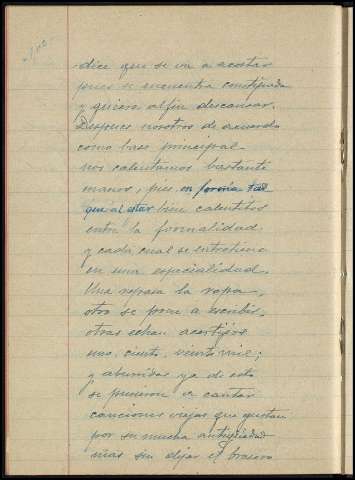 dice que se va a acostar
pues se encuentra constipada
y quiere al fin descansar.
Despues nosotros de acuerdo
como base principal
nos calentamos bastante
manos, pies en forma tal
que al estar bien calentitos
entra la formalidad
y cada cual se entretiene
en una especialidad.
Una repasa la ropa,
otro se pone a escribir,
otras echan acertijos
uno, ciento, veintemil;
y aburridas ya de esto
se pusieron a cantar
canciones viejas que gustan
por su mucha antigüedad
mas sin dejar el brasero